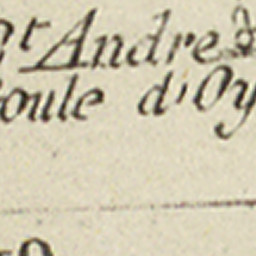 St Andre
oule d'Oy